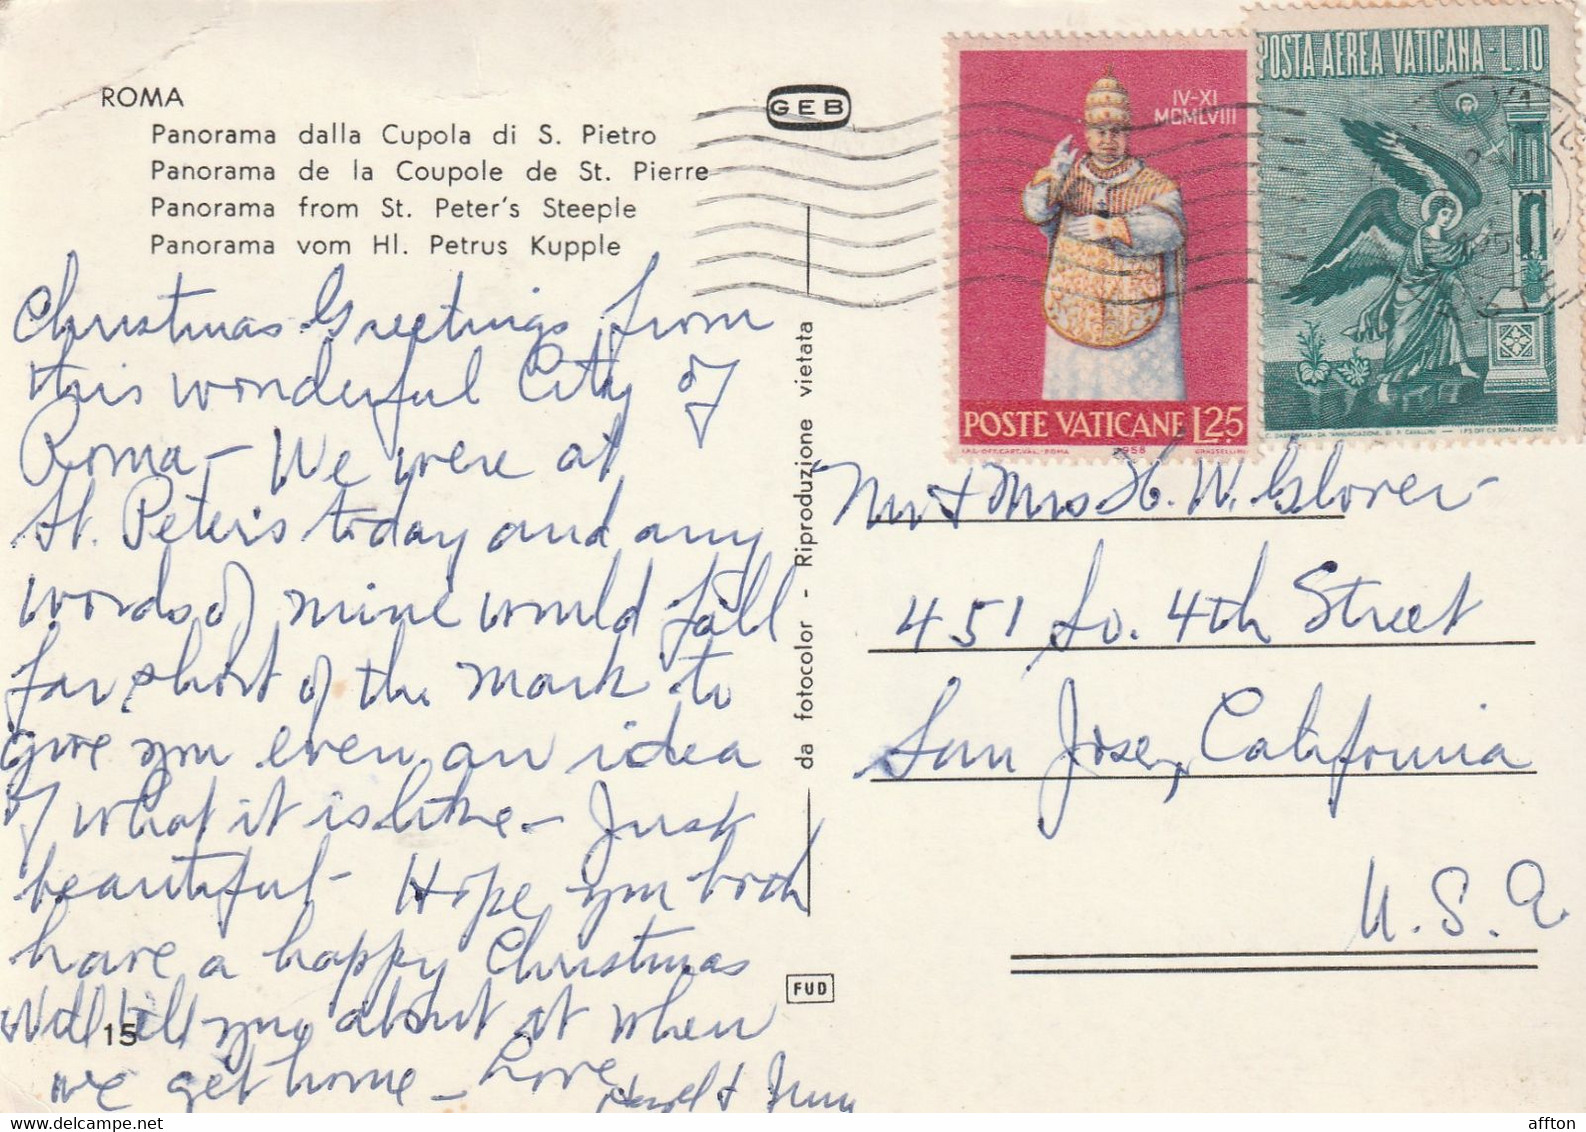 ROMA
Panorama dalla Cupola di S. Pietro
Panorama de la Coupole de St. Pierre
Panorama from St. Peter's Steeple
Panorama vom Hl. Petrus Kupple
GEB
IV-XI
MCMLVIII
POSTE VATICANE L.25
1958
POSTA AEREA VATICANA - L.10
Christmas Greetings from
this wonderful City of
Roma - We were at
St. Peter's today and any
words of mine would fall
far short of the mark to
give you even an idea
of what it is like - Just
beautiful - Hope you both
have a happy Christmas
Will tell you about it when
we get home - Love
Hazel &
15
da fotocolor - Riproduzione vietata
FUD
Mr & Mrs H. W. Glover
451 So. 4th Street
San Jose, California
U.S.A
affton